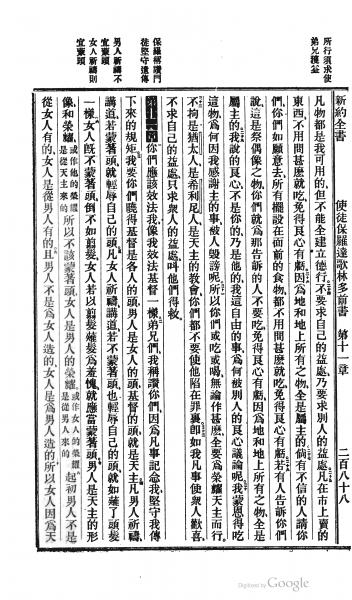 新約全書　使徒保羅達歌林多前書　第十一章　二百八十八
所行須求使
弟兄獲益
保羅稱讚門
徒堅守遺傳
男人祈禱不
宜蒙頭
女人祈禱則
宜蒙頭
凡物都是可用的、但不能全建立德行、不要求自己的益處、乃要求別人的益處、凡在市上賣的
東西、不用問甚麽就吃、免得良心有虧、因爲地和地上所有之物、全是屬主的、倘有不信的人請你
們、你們如願意去、所有擺設在面前的食物、都不用問甚麽就吃、免得良心有虧、若有人告訴你們
說、這是祭偶像之物、你們就爲那告訴的人不要吃、免得良心有虧、因爲地和地上所有之物全是
屬主的、我說的良心、不是你的、乃是他的、我這自由的事、爲何被別人的良心議論呢、我蒙恩得吃
這物、爲何因我感謝主的事、被人毀謗呢、所以你們或吃或喝、無論作甚麽、全要爲榮耀天主而行、
不拘是猶太人、是希利尼人、是天主的教會、你們都不要使他陷在罪裏、卽如我凡事使衆人歡喜、
不求自己的益處、只求衆人的益處、叫他們得救、
第十一章 你們應該效法我、像我效法基督一樣、弟兄們、我稱讚你們、因爲凡事記念我、堅守我傳
下來的規矩、我要你們曉得基督是各人的頭、男人是女人的頭、基督的頭就是天主、凡男人祈禱
講道、若蒙著頭、就輕辱自己的頭、凡女人祈禱講道、若不蒙著頭、也輕辱自己的頭、就如薙了頭髮
一樣、女人既不蒙著頭、倒不如剪髮、女人若以剪髮薙髮爲羞愧、就應當蒙著頭、男人是天主的形
像和榮耀、或作他的榮耀是從天主來的所以不該蒙著頭、女人是男人的榮耀、或作女人的榮耀是從男人來的起初男人不是
從女人有的、女人是從男人有的、且男人不是爲女人造的、女人是爲男人造的、所以女人因爲天
Digitized by Google